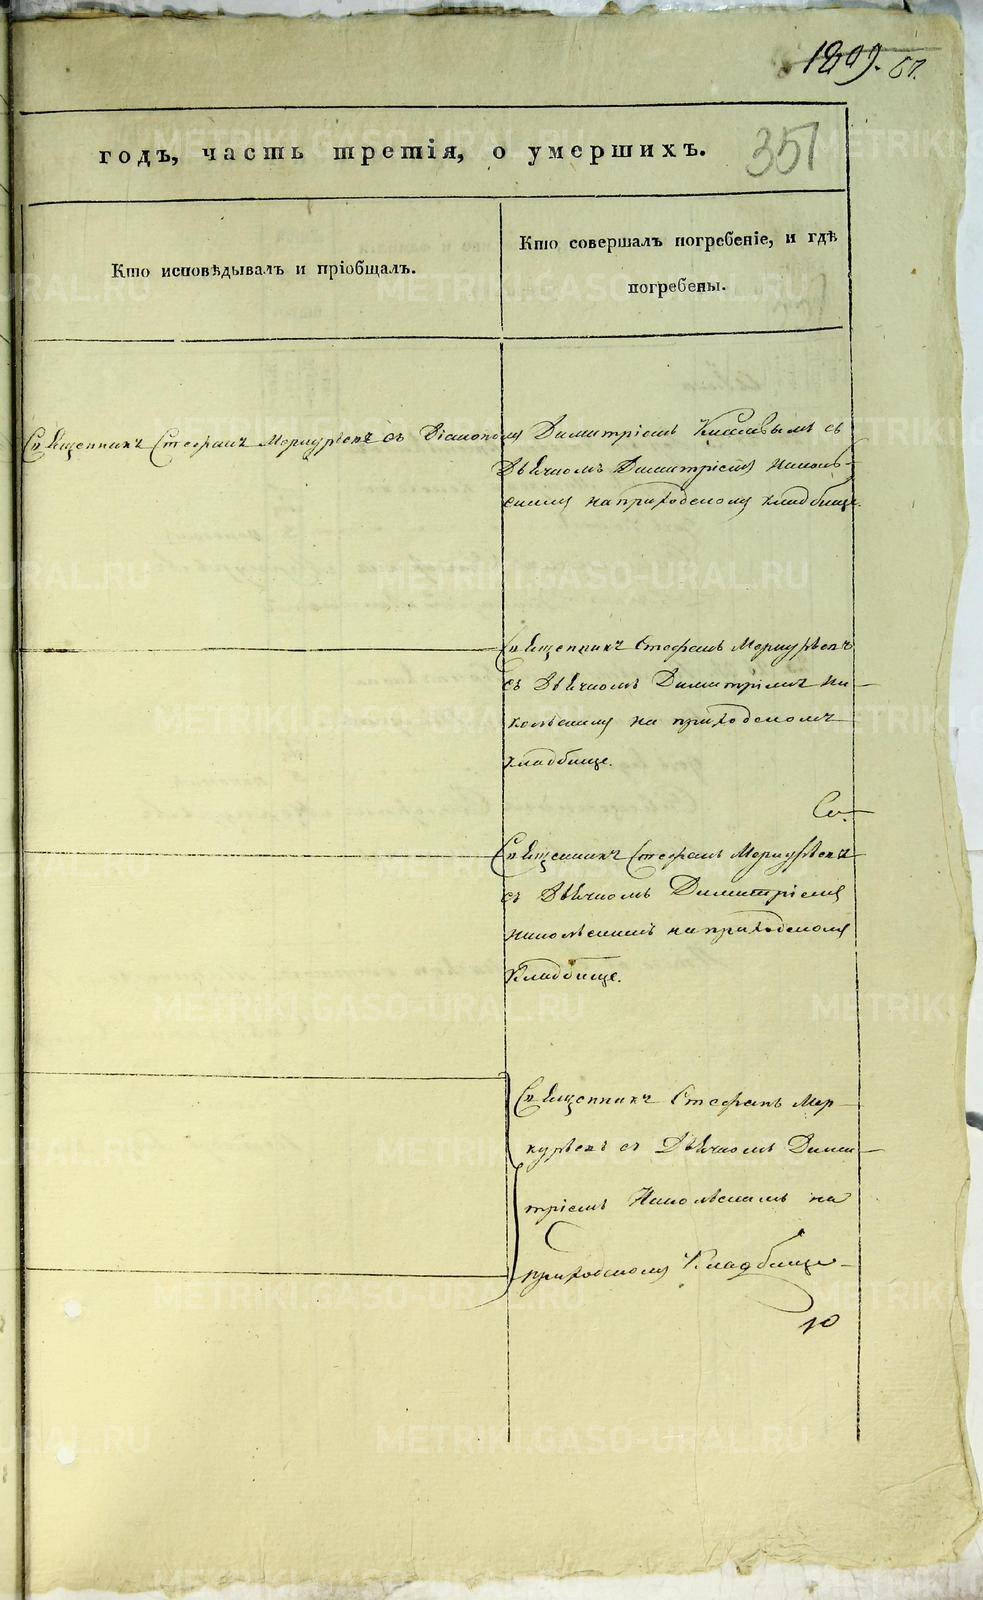 1899. 67.
годъ, часть третія, о умершихъ.
351
Кто исповѣдывалъ и пріобщалъ.
Кто совершалъ погребеніе, и гдѣ
погребены.
Священникъ Стефанъ Меркурьевъ съ Діакономъ Димитріемъ съ
Дьячкомъ Димитріемъ Николь-
скимъ на приходскомъ кладбище.
Священникъ Стефанъ Меркурьевъ
съ Дьячкомъ Димитріемъ Ни-
кольскимъ на приходскомъ
кладбище.
Св.
Священникъ Стефанъ Меркурьевъ
съ Дьячкомъ Димитріемъ
Никольскимъ на приходскомъ
Кладбище.
Священникъ Стефанъ Мер-
курьевъ съ Дьячкомъ Дими-
тріемъ Никольскимъ на
приходскомъ Кладбище
METRIKI.GASO-URAL.RU